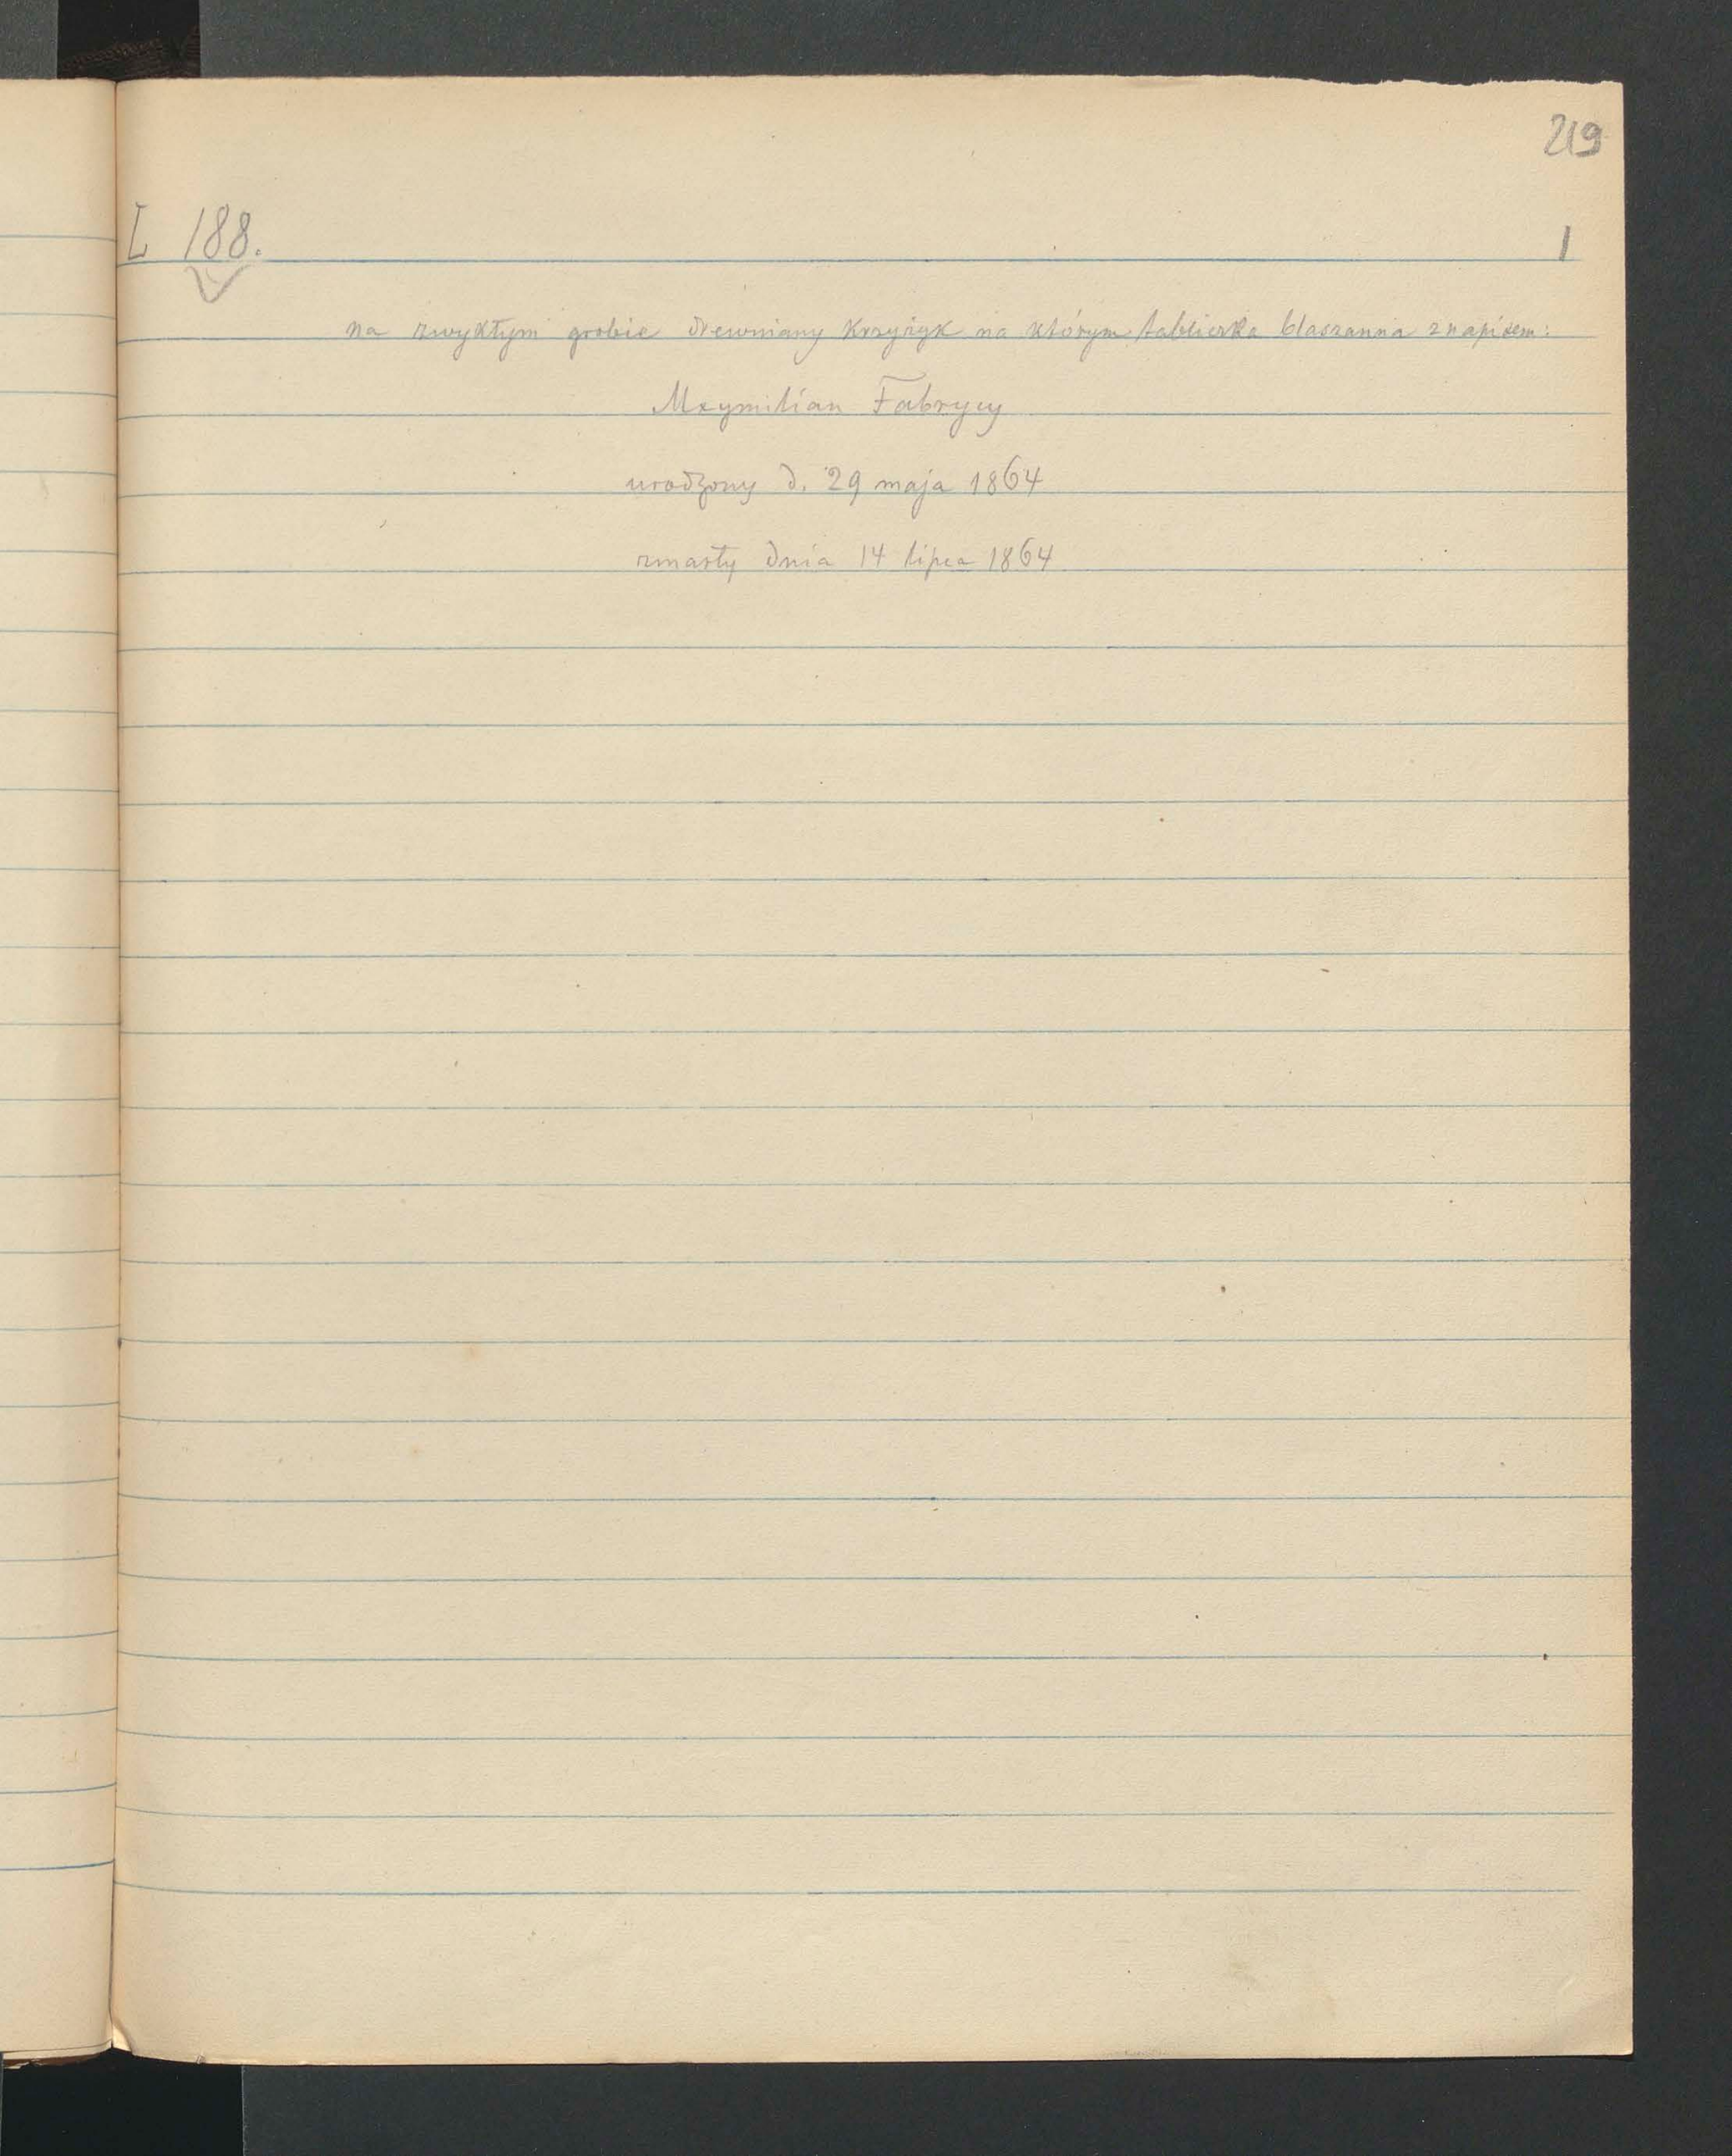 219
L 188.
1
na zwykłym grobie drewniany krzyżyk na którym tabliczka blaszanna z napisem:
Mxymilian Fabrycy
urodzony d. 29 maja 1864
zmarły dnia 14 lipca 1864